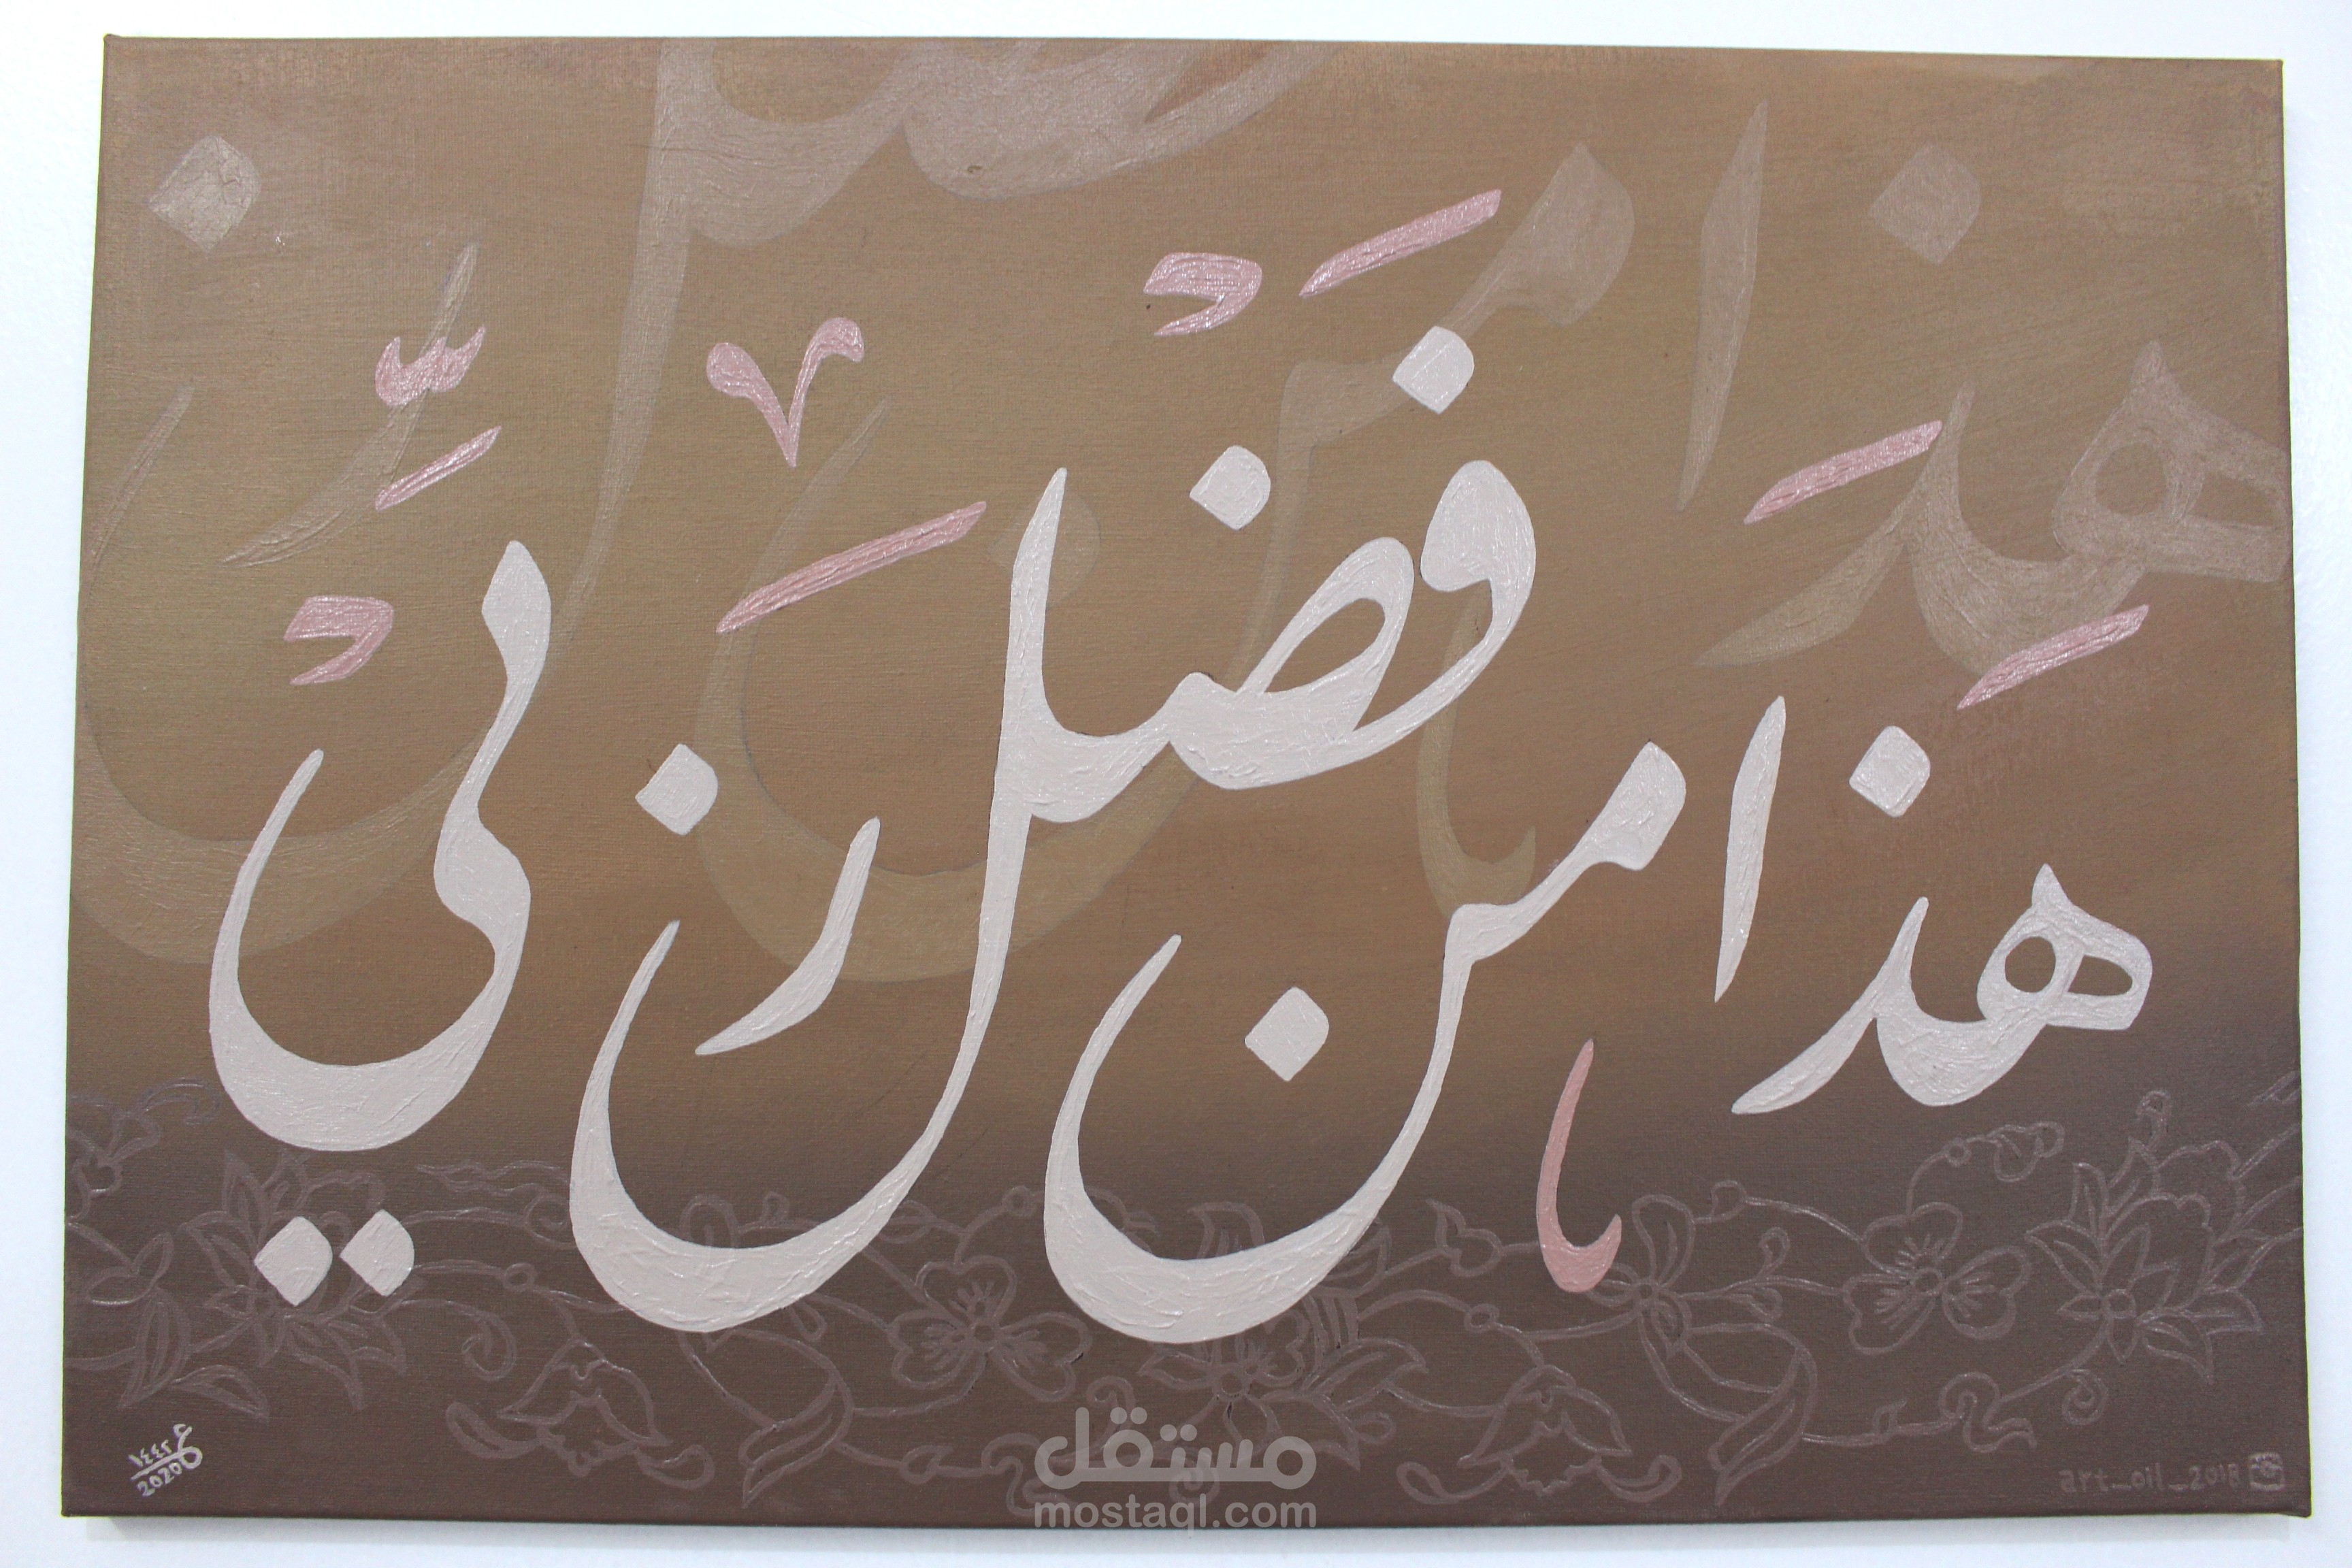 هَذَا مِنْ فَضْلِ رَبِّيْ
هذا من
١٤٤٢
2020
art_oil_2018
مستقل
mostaql.com